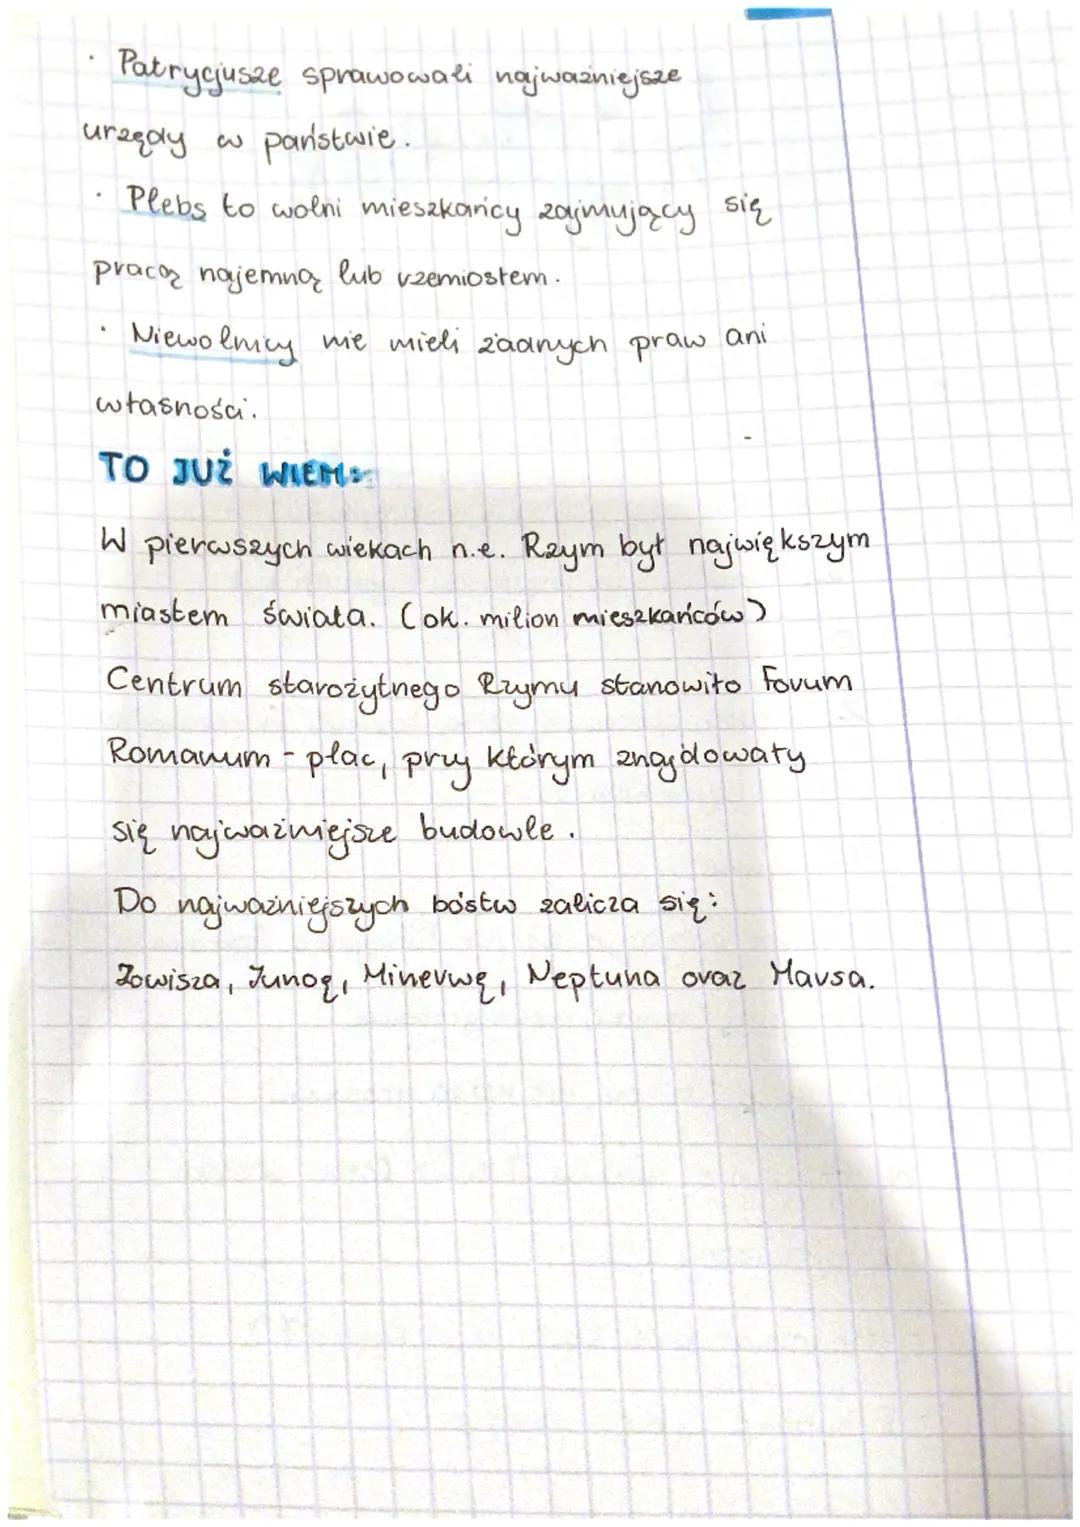 · Patrycjusze sprawowali najważniejsze
urzędy w państwie.
· Plebs to wolni mieszkańcy zajmujący się
pracą najemną lub rzemiosłem.
· Niewolnicy nie mieli żadnych praw ani
własności.
TO JUŻ WIEM:
W pierwszych wiekach n.e. Rzym był największym
miastem świata. (ok. milion mieszkańców)
Centrum starożytnego Rzymu stanowiło Forum
Romanum - plac, przy którym znajdowały
się najważniejsze budowle.
Do najważniejszych bóstw zalicza się:
Jowisza, Junoę, Minerwę, Neptuna oraz Marsa.